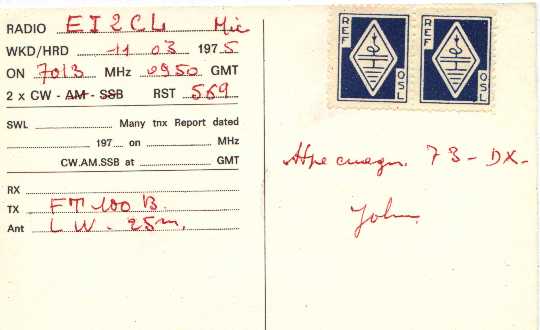 RADIO EI2CL Mic
WKD/HRD 11 03 1975
ON 7013 MHz 0950 GMT
2 x CW - AM - SSB RST 569
SWL Many tnx Report dated
197 on MHz
CW.AM.SSB at GMT
RX
TX FT 100 B.
Ant L W. 25m.
REF QSL
REF QSL
73 - DX -
John